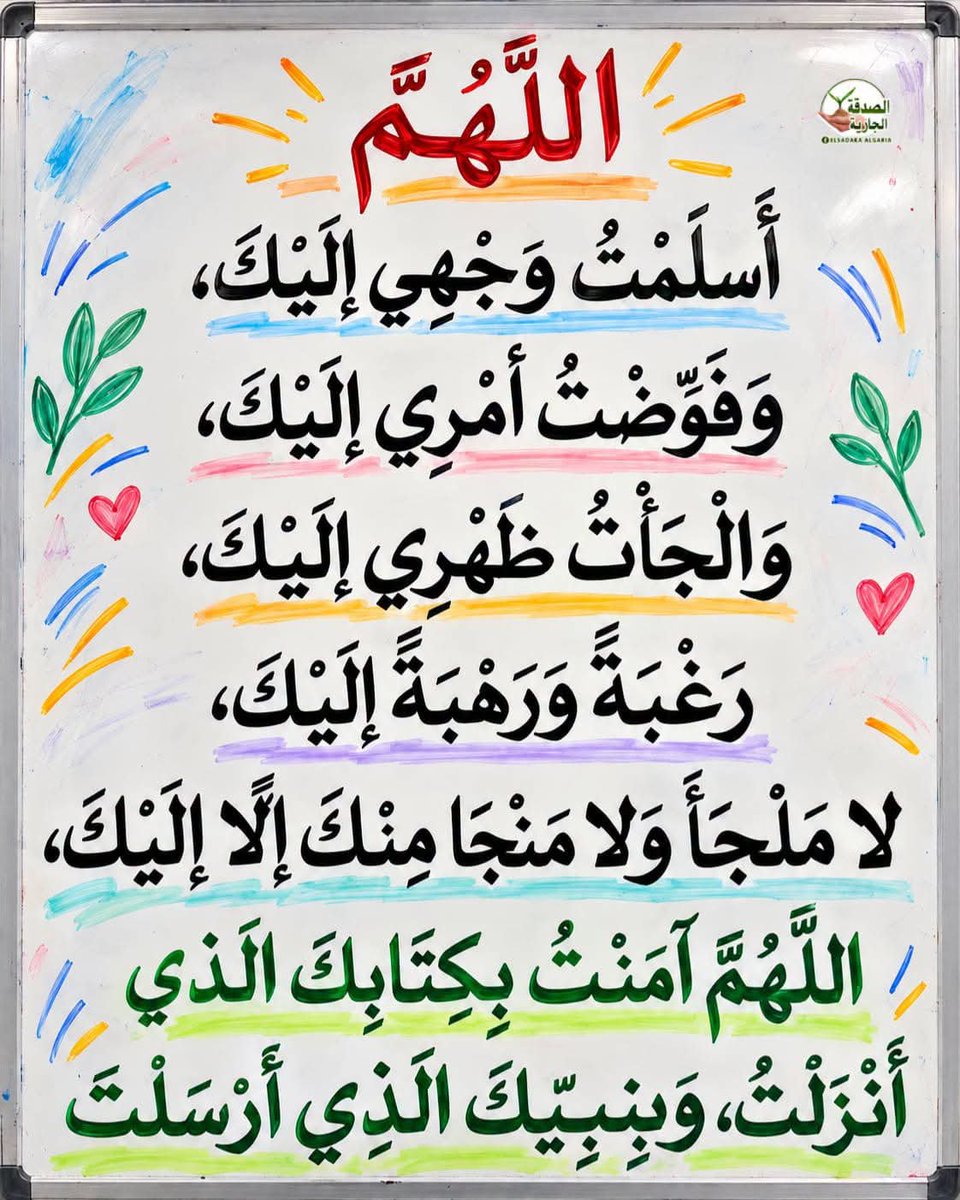 اللَّهُمَّ
الصدقة
الجارية
ELSADAKA ALGARIA
أَسلَمْتُ وَجْهِي إلَيْكَ،
وَفَوِّضْتُ أمْرِي إلَيْكَ،
وَالْجَأْتُ ظَهْرِي إلَيْكَ،
رَغْبَةً وَرَهْبَةً إلَيْكَ،
لا مَلْجَأَ وَلا مَنْجَا مِنْكَ إلَّا إلَيْكَ،
اللَّهُمَّ آمَنْتُ بِكِتَابِكَ الَذي
أَنْزَلْتُ، وَبِنِبِيّكَ الَذِي أَرْسَلْتَ